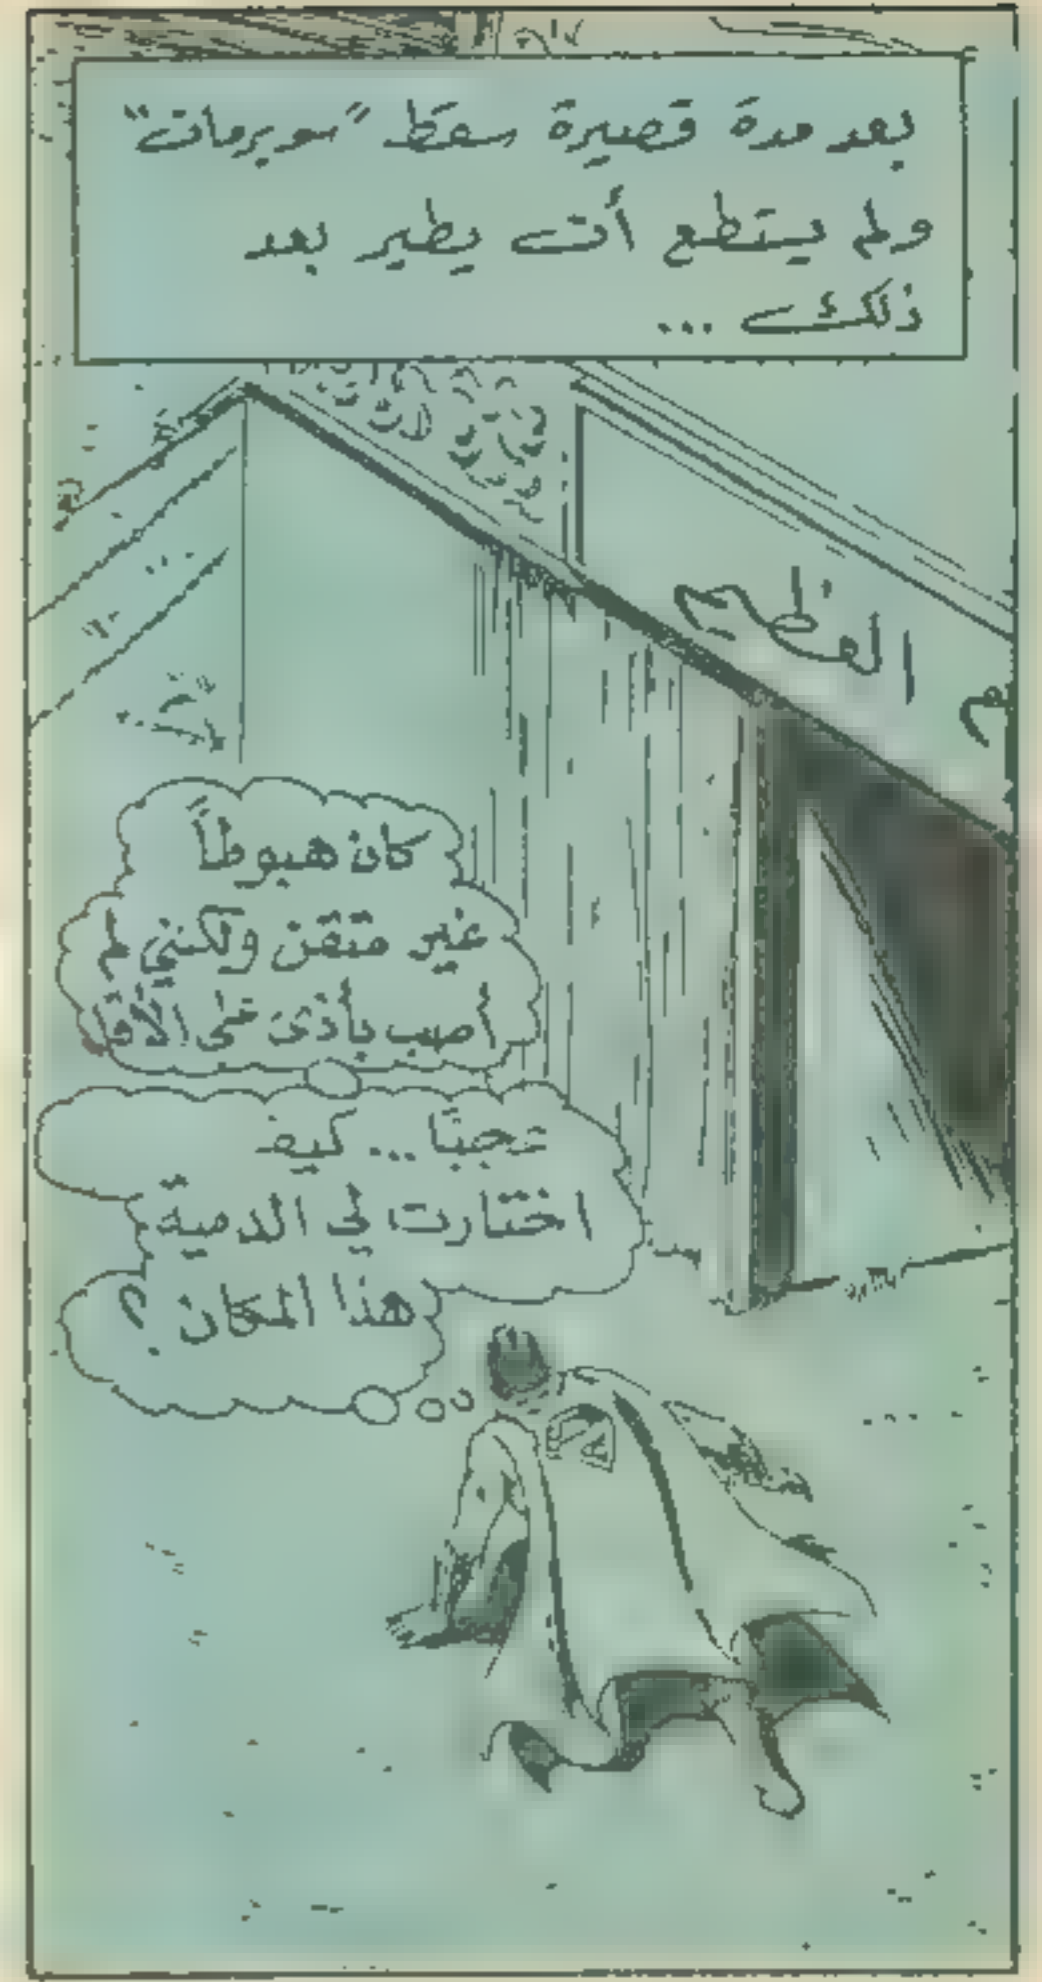 بعد مدة قصيرة سقط "سوبرمان"
ولم يستطع أن يطير بعد
ذلك ...
العظيم
كان هبوطاً
غير متقن ولكنني لم
أصب بأذى على الأقل
عجبًا ... كيف
اختارت لي الدمية
هذا المكان ؟